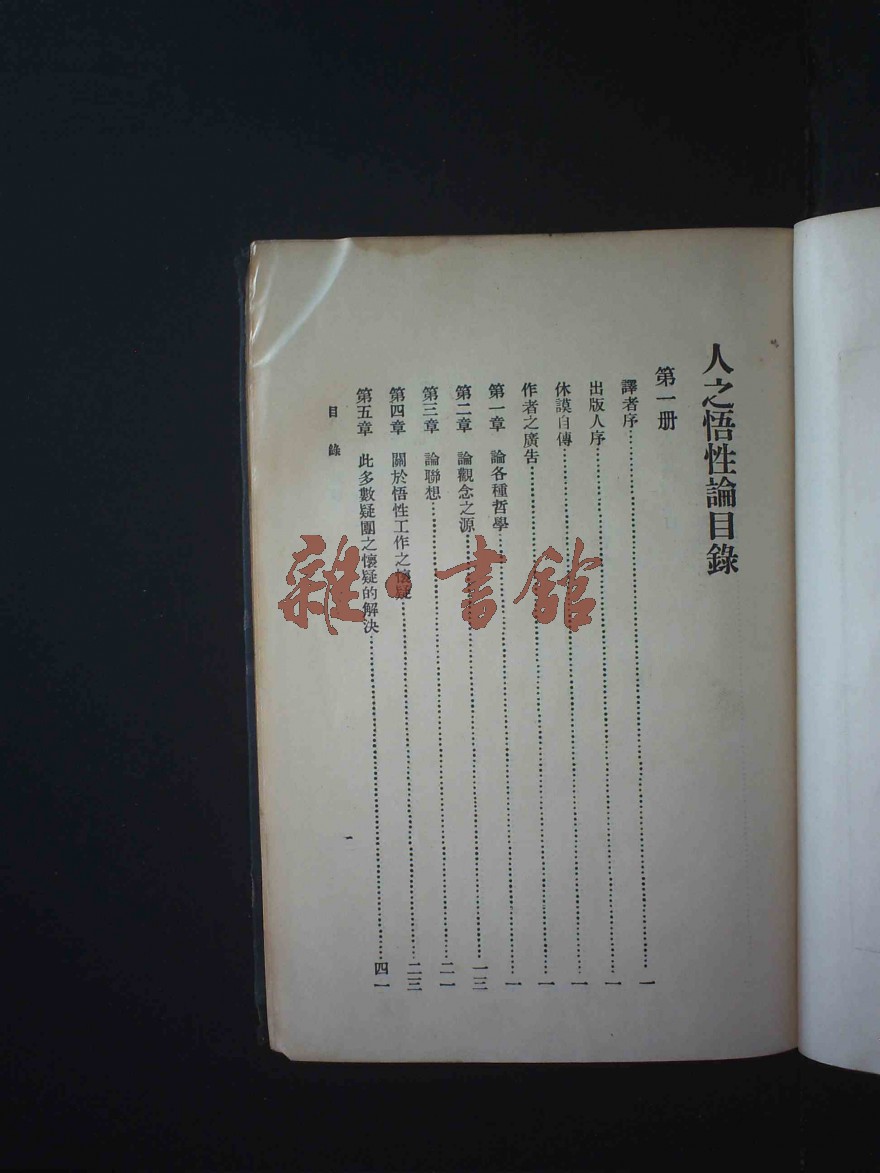 人之悟性論目錄
第一册
譯者序……一
出版人序……一
休謨自傳……一
作者之廣告……一
第一章 論各種哲學……一
第二章 論觀念之源……一三
第三章 論聯想……二一
第四章 關於悟性工作之懷疑……二三
第五章 此多數疑團之懷疑的解決……四一
目錄
一
雜·書館